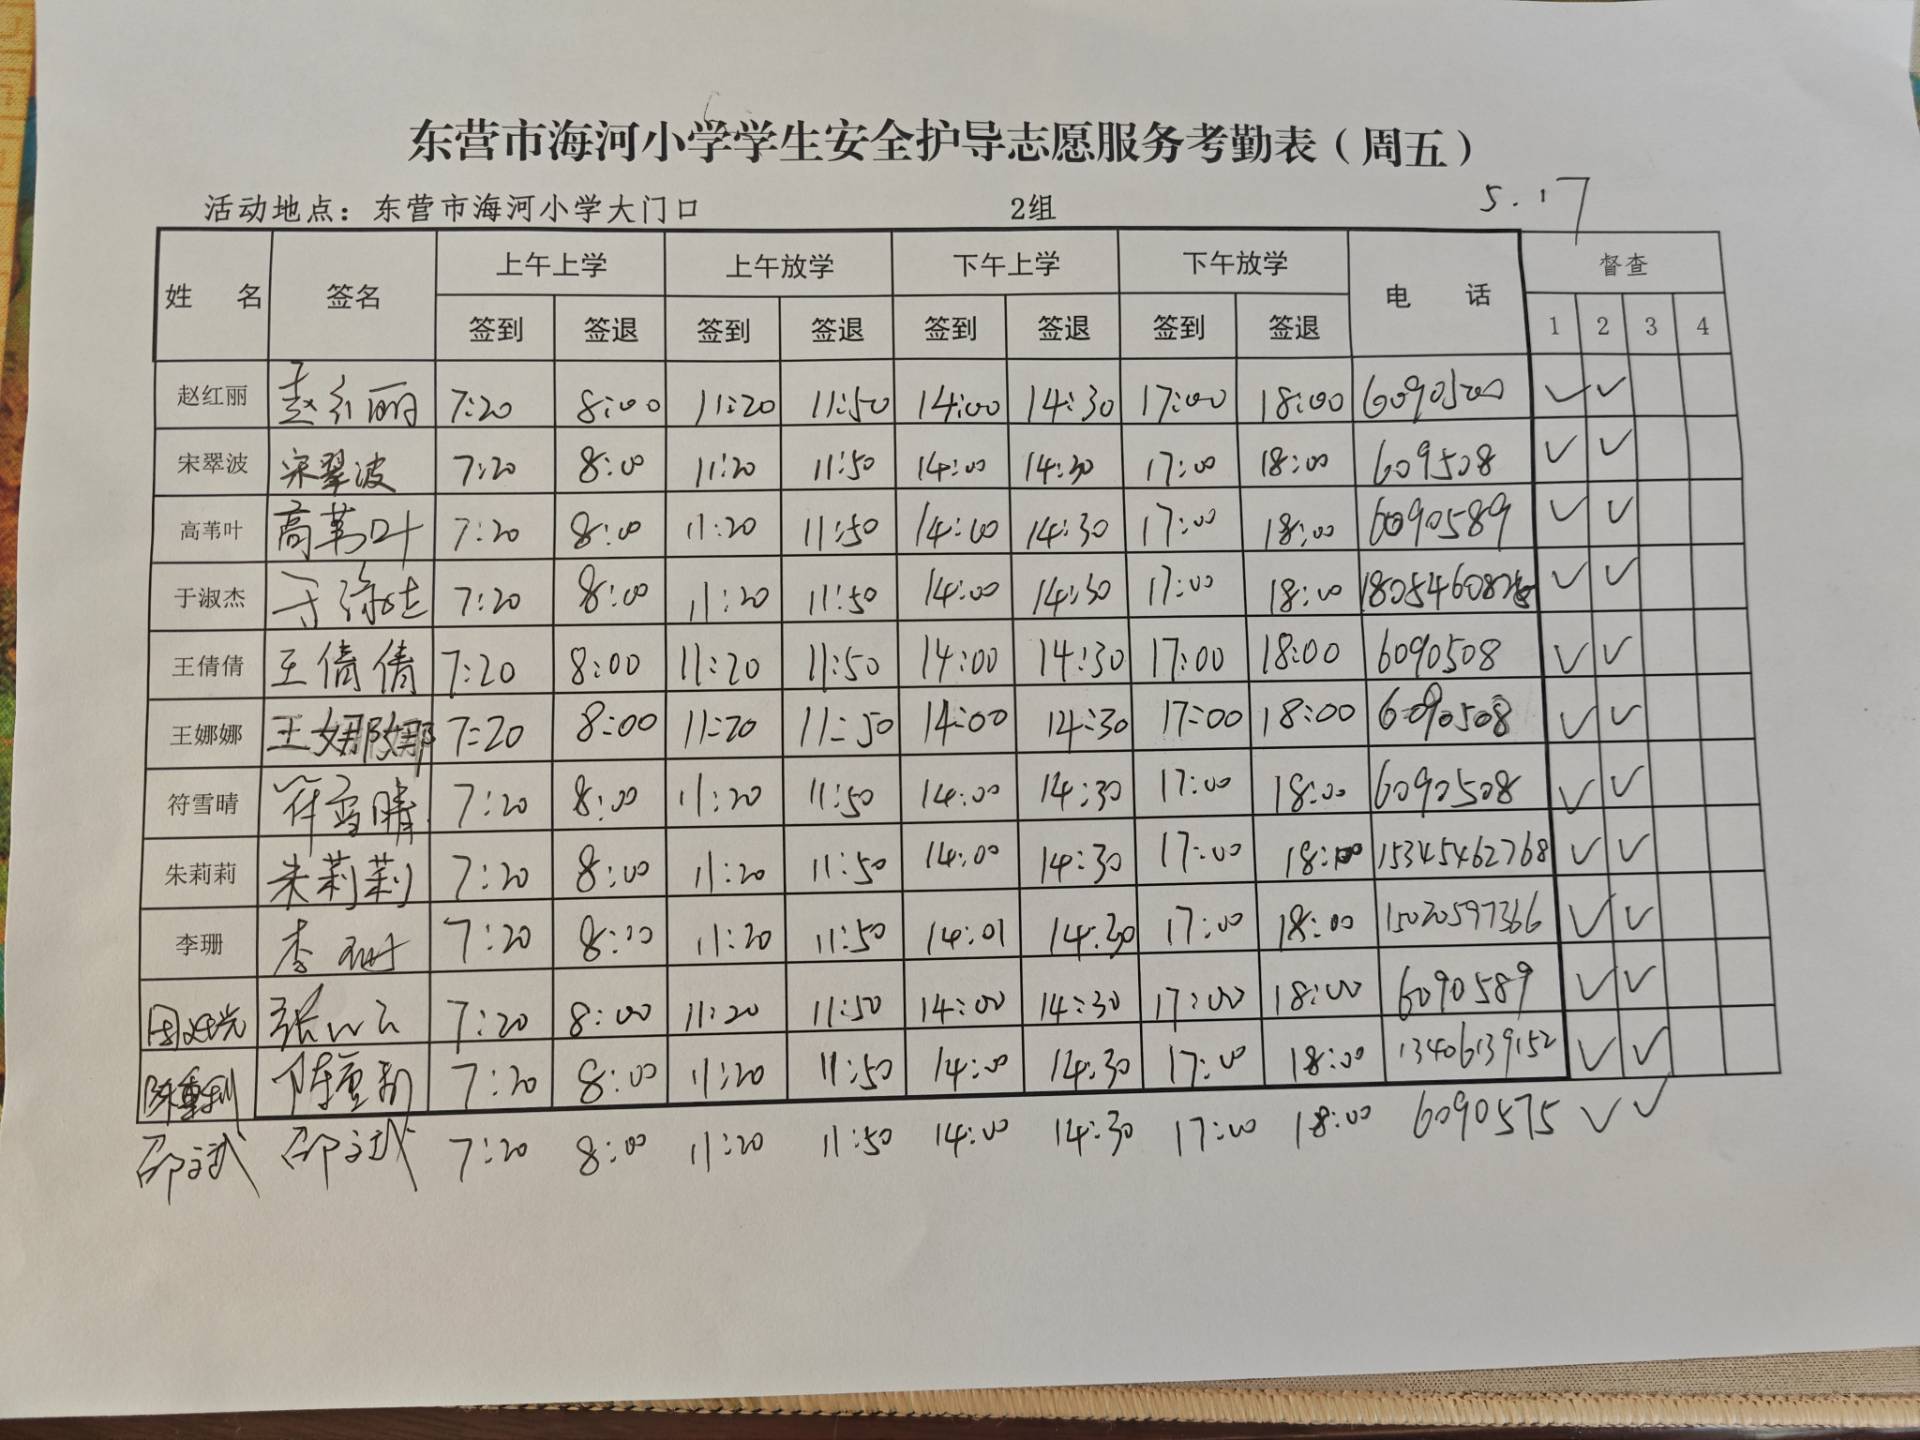 东营市海河小学学生安全护导志愿服务考勤表（周五）
活动地点：东营市海河小学大门口 2组 5.17
姓 名 签名 上午上学 上午放学 下午上学 下午放学 电 话 督查
签到 签退 签到 签退 签到 签退 签到 签退 1 2 3 4
赵红丽 赵红丽 7:20 8:00 11:20 11:50 14:00 14:30 17:00 18:00 6090500 ✓ ✓
宋翠波 宋翠波 7:20 8:00 11:20 11:50 14:00 14:30 17:00 18:00 609508 ✓ ✓
高苇叶 高苇叶 7:20 8:00 11:20 11:50 14:00 14:30 17:00 18:00 6090589 ✓ ✓
于淑杰 于淑杰 7:20 8:00 11:20 11:50 14:00 14:30 17:00 18:00 ✓ ✓
王倩倩 王倩倩 7:20 8:00 11:20 11:50 14:00 14:30 17:00 18:00 6090508 ✓ ✓
王娜娜 王娜娜 7:20 8:00 11:20 11:50 14:00 14:30 17:00 18:00 6090508 ✓ ✓
符雪晴 符雪晴 7:20 8:00 11:20 11:50 14:00 14:30 17:00 18:00 6090508 ✓ ✓
朱莉莉 朱莉莉 7:20 8:00 11:20 11:50 14:00 14:30 17:00 18:00 15345462768 ✓ ✓
李珊 李珊 7:20 8:00 11:20 11:50 14:01 14:30 17:00 18:00 15020597366 ✓ ✓
7:20 8:00 11:20 11:50 14:00 14:30 17:00 18:00 6090589 ✓ ✓
7:20 8:00 11:20 11:50 14:00 14:30 17:00 18:00 13406139152 ✓ ✓
邵文武 邵文武 7:20 8:00 11:20 11:50 14:00 14:30 17:00 18:00 6090575 ✓ ✓